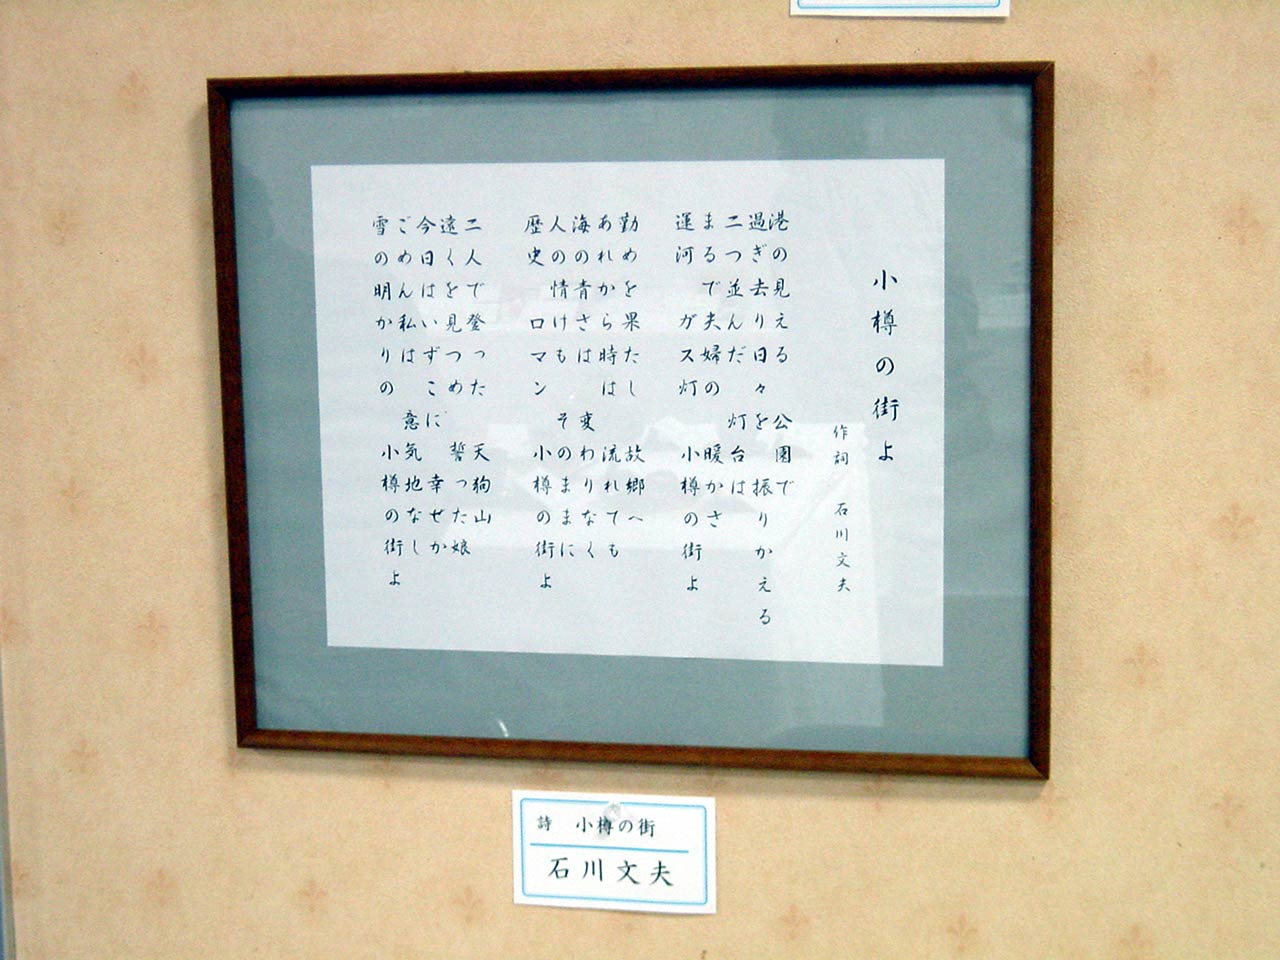 小樽の街よ
作詞 石川文夫
港の見える 公園で
過ぎ去り日々を 振りかえる
二つ並んだ 灯台は
まるで夫婦の 暖かさ
運河 ガス灯 小樽の街よ
勤めを果たし 故郷へ
あれから時は 流れても
海の青さは 変わりなく
人の情けも そのままに
歴史 ロマン 小樽の街よ
二人で登った 天狗山
遠くを見つめ 誓った娘
今日はいずこに 幸せか
ごめん私は 意気地なし
雪の明かりの 小樽の街よ
詩 小樽の街
石川文夫